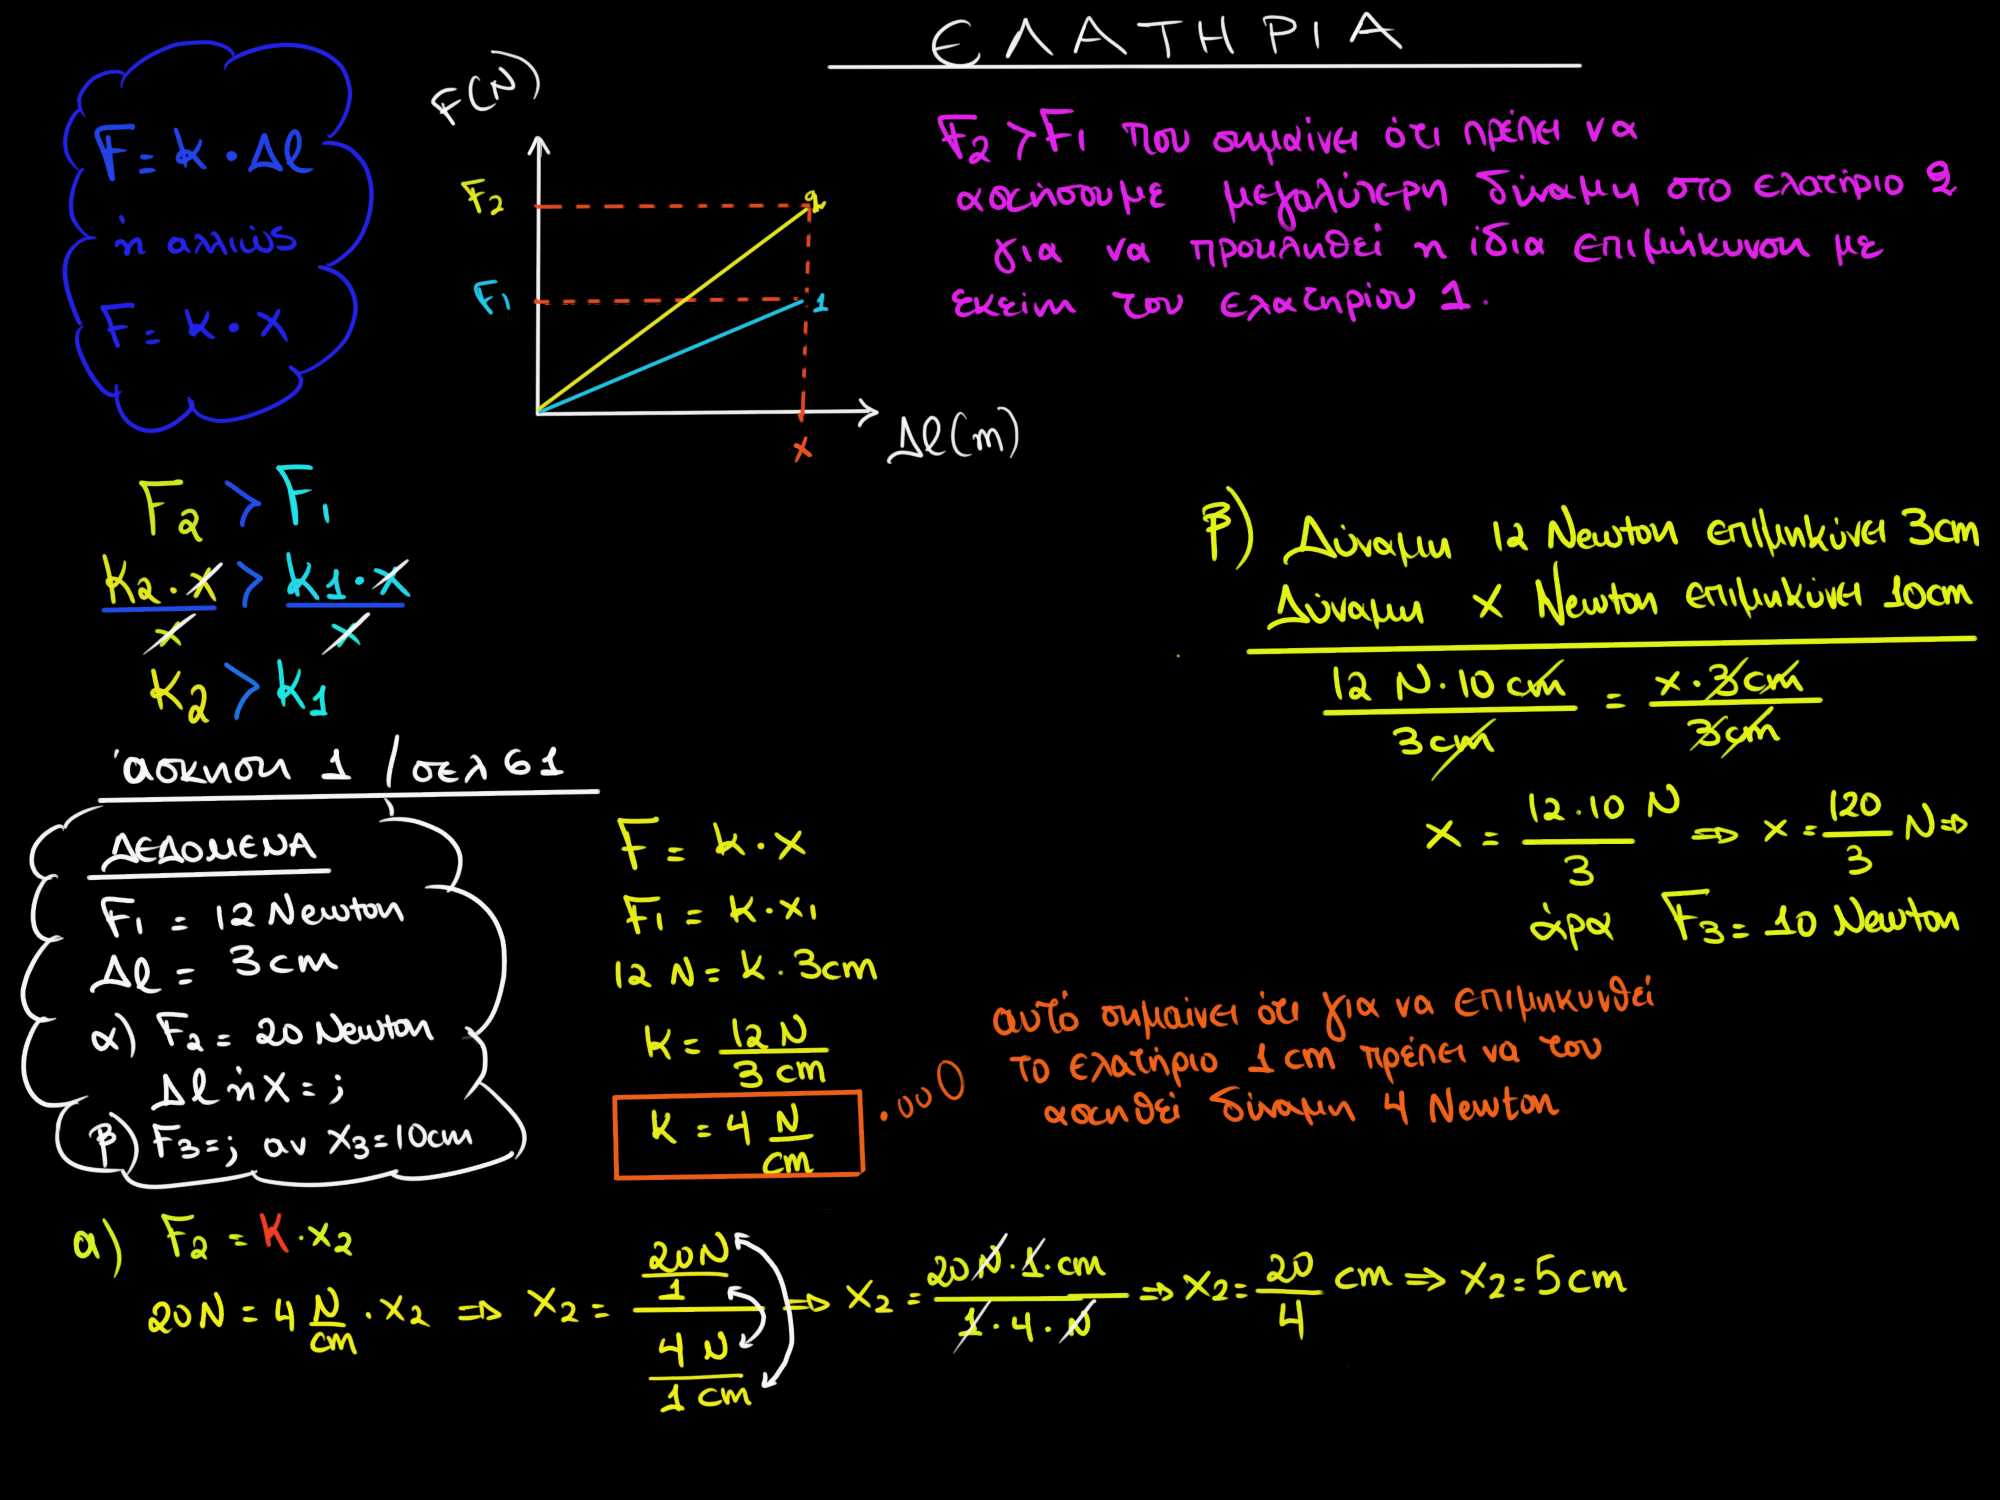 ΕΛΑΤΗΡΙΑ
F = k · Δl
ή αλλιώς
F = k · x
F(N)
F2
F1
2
1
x
Δl(m)
F2 > F1 που σημαίνει ότι πρέπει να
ασκήσουμε μεγαλύτερη δύναμη στο ελατήριο 2
για να προκληθεί η ίδια επιμήκυνση με
εκείνη του ελατηρίου 1.
F2 > F1
k2 · x / x > k1 · x / x
k2 > k1
άσκηση 1 / σελ 61
ΔΕΔΟΜΕΝΑ
F1 = 12 Newton
Δl = 3 cm
α) F2 = 20 Newton
Δl ή x = ;
β) F3 = ; αν x3 = 10cm
F = k · x
F1 = k · x1
12 N = k · 3cm
k = 12 N / 3 cm
k = 4 N / cm
αυτό σημαίνει ότι για να επιμηκυνθεί
το ελατήριο 1 cm πρέπει να του
ασκηθεί δύναμη 4 Newton
β) Δύναμη 12 Newton επιμηκύνει 3cm
Δύναμη x Newton επιμηκύνει 10cm
12 N · 10 cm / 3 cm = x · 3 cm / 3 cm
x = 12 · 10 / 3 N ⇒ x = 120 / 3 N ⇒
άρα F3 = 10 Newton
α) F2 = k · x2
20N = 4 N / cm · x2 ⇒ x2 = 20N / 1 / 4 N / 1 cm ⇒ x2 = 20 N · 1 · cm / 1 · 4 · N ⇒ x2 = 20 / 4 cm ⇒ x2 = 5 cm